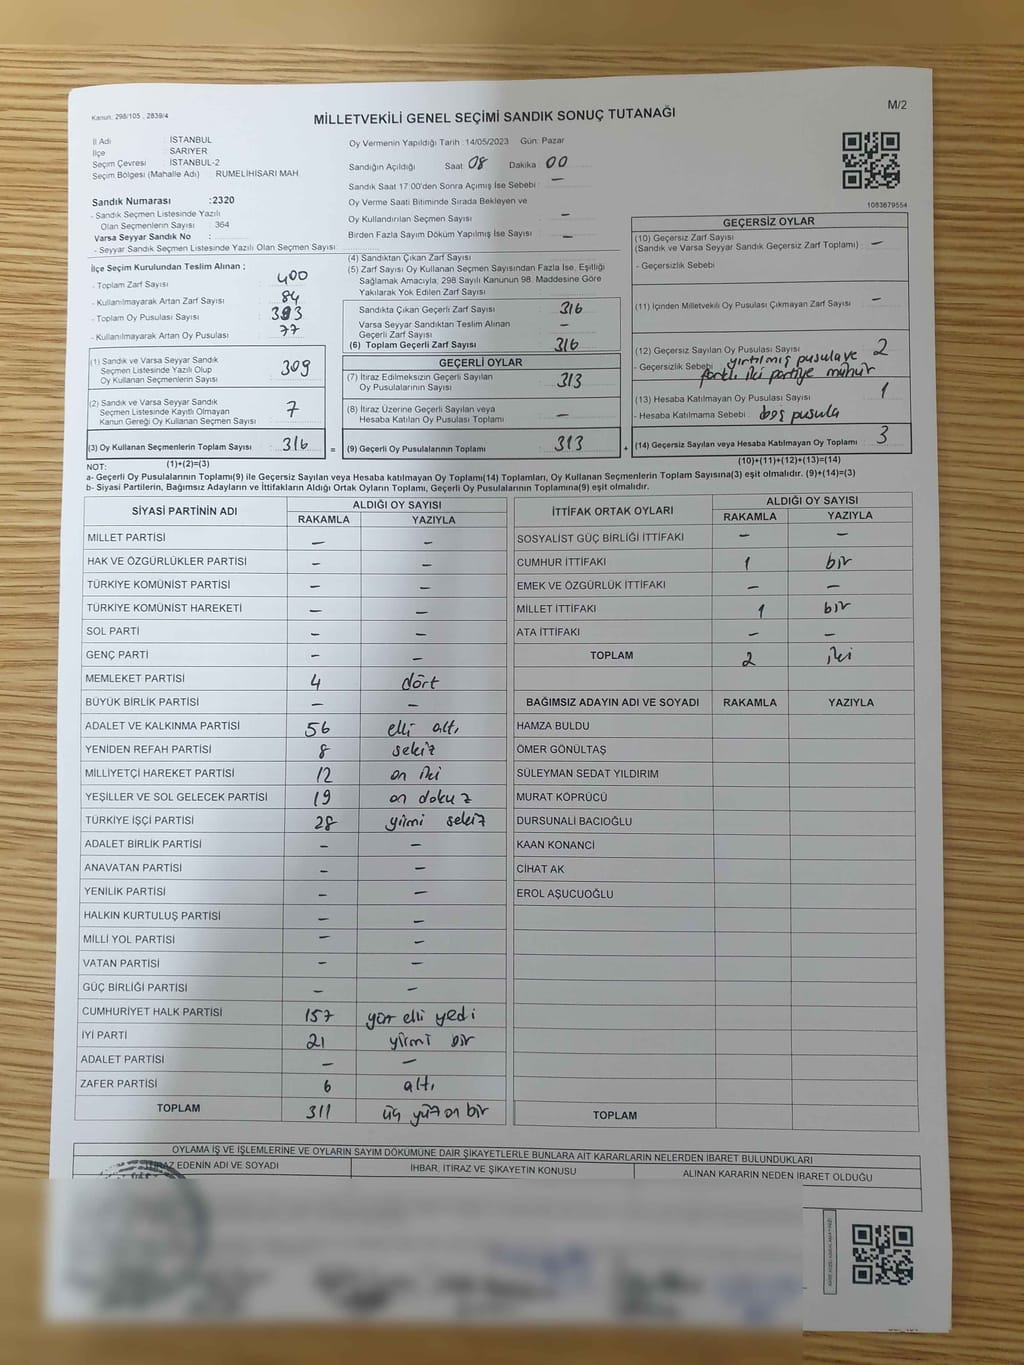 Kanun: 298/105 , 2839/4
MİLLETVEKİLİ GENEL SEÇİMİ SANDIK SONUÇ TUTANAĞI
M/2
İl Adı : İSTANBUL
İlçe : SARIYER
Seçim Çevresi : İSTANBUL-2
Seçim Bölgesi (Mahalle Adı) RUMELİHİSARI MAH.
Sandık Numarası :2320
- Sandık Seçmen Listesinde Yazılı
Olan Seçmenlerin Sayısı : 364
Varsa Seyyar Sandık No :
- Seyyar Sandık Seçmen Listesinde Yazılı Olan Seçmen Sayısı :
Oy Vermenin Yapıldığı Tarih : 14/05/2023 Gün: Pazar
Sandığın Açıldığı Saat 08 Dakika 00
Sandık Saat 17:00'den Sonra Açımış İse Sebebi : —
Oy Verme Saati Bitiminde Sırada Bekleyen ve
Oy Kullandırılan Seçmen Sayısı : —
Birden Fazla Sayım Döküm Yapılmış İse Sayısı : —
1083679554
İlçe Seçim Kurulundan Teslim Alınan ;
- Toplam Zarf Sayısı : 400
- Kullanılmayarak Artan Zarf Sayısı : 84
- Toplam Oy Pusulası Sayısı : 393
- Kullanılmayarak Artan Oy Pusulası : 77
(1) Sandık ve Varsa Seyyar Sandık
Seçmen Listesinde Yazılı Olup
Oy Kullanan Seçmenlerin Sayısı : 309
(2) Sandık ve Varsa Seyyar Sandık
Seçmen Listesinde Kayıtlı Olmayan
Kanun Gereği Oy Kullanan Seçmen Sayısı : 7
(3) Oy Kullanan Seçmenlerin Toplam Sayısı : 316
(1)+(2)=(3)
(4) Sandıktan Çıkan Zarf Sayısı :
(5) Zarf Sayısı Oy Kullanan Seçmen Sayısından Fazla İse, Eşitliği
Sağlamak Amacıyla, 298 Sayılı Kanunun 98. Maddesine Göre
Yakılarak Yok Edilen Zarf Sayısı :
Sandıkta Çıkan Geçerli Zarf Sayısı : 316
Varsa Seyyar Sandıktan Teslim Alınan
Geçerli Zarf Sayısı : —
(6) Toplam Geçerli Zarf Sayısı : 316
GEÇERLİ OYLAR
(7) İtiraz Edilmeksizin Geçerli Sayılan
Oy Pusulalarının Sayısı : 313
(8) İtiraz Üzerine Geçerli Sayılan veya
Hesaba Katılan Oy Pusulası Toplamı : —
= (9) Geçerli Oy Pusulalarının Toplamı : 313 +
GEÇERSİZ OYLAR
(10) Geçersiz Zarf Sayısı
(Sandık ve Varsa Seyyar Sandık Geçersiz Zarf Toplamı) : —
- Geçersizlik Sebebi
(11) İçinden Milletvekili Oy Pusulası Çıkmayan Zarf Sayısı : —
(12) Geçersiz Sayılan Oy Pusulası Sayısı : 2
- Geçersizlik Sebebi yırtılmış pusula ve
farklı iki partiye mühür
(13) Hesaba Katılmayan Oy Sayısı : 1
- Hesaba Katılmama Sebebi : boş pusula
(14) Geçersiz Sayılan veya Hesaba Katılmayan Oy Toplamı : 3
(10)+(11)+(12)+(13)=(14)
NOT:
a- Geçerli Oy Pusulalarının Toplamı(9) ile Geçersiz Sayılan veya Hesaba katılmayan Oy Toplamı(14) Toplamları, Oy Kullanan Seçmenlerin Toplam Sayısına(3) eşit olmalıdır. (9)+(14)=(3)
b- Siyasi Partilerin, Bağımsız Adayların ve İttifakların Aldığı Ortak Oyların Toplamı, Geçerli Oy Pusulalarının Toplamına(9) eşit olmalıdır.
SİYASİ PARTİNİN ADI ALDIĞI OY SAYISI
RAKAMLA YAZIYLA
MİLLET PARTİSİ — —
HAK VE ÖZGÜRLÜKLER PARTİSİ — —
TÜRKİYE KOMÜNİST PARTİSİ — —
TÜRKİYE KOMÜNİST HAREKETİ — —
SOL PARTİ — —
GENÇ PARTİ — —
MEMLEKET PARTİSİ 4 dört
BÜYÜK BİRLİK PARTİSİ — —
ADALET VE KALKINMA PARTİSİ 56 elli altı
YENİDEN REFAH PARTİSİ 8 sekiz
MİLLİYETÇİ HAREKET PARTİSİ 12 on iki
YEŞİLLER VE SOL GELECEK PARTİSİ 19 on dokuz
TÜRKİYE İŞÇİ PARTİSİ 28 yirmi sekiz
ADALET BİRLİK PARTİSİ — —
ANAVATAN PARTİSİ — —
YENİLİK PARTİSİ — —
HALKIN KURTULUŞ PARTİSİ — —
MİLLİ YOL PARTİSİ — —
VATAN PARTİSİ — —
GÜÇ BİRLİĞİ PARTİSİ — —
CUMHURİYET HALK PARTİSİ 157 yüz elli yedi
İYİ PARTİ 21 yirmi bir
ADALET PARTİSİ — —
ZAFER PARTİSİ 6 altı
TOPLAM 311 üç yüz on bir
İTTİFAK ORTAK OYLARI ALDIĞI OY SAYISI
RAKAMLA YAZIYLA
SOSYALİST GÜÇ BİRLİĞİ İTTİFAKI — —
CUMHUR İTTİFAKI 1 bir
EMEK VE ÖZGÜRLÜK İTTİFAKI — —
MİLLET İTTİFAKI 1 bir
ATA İTTİFAKI — —
TOPLAM 2 iki
BAĞIMSIZ ADAYIN ADI VE SOYADI RAKAMLA YAZIYLA
HAMZA BULDU
ÖMER GÖNÜLTAŞ
SÜLEYMAN SEDAT YILDIRIM
MURAT KÖPRÜCÜ
DURSUNALİ BACIOĞLU
KAAN KONANCİ
CİHAT AK
EROL AŞUCUOĞLU
TOPLAM
OYLAMA İŞ VE İŞLEMLERİNE VE OYLARIN SAYIM DÖKÜMÜNE DAİR ŞİKAYETLERLE BUNLARA AİT KARARLARIN NELERDEN İBARET BULUNDUKLARI
İTİRAZ EDENİN ADI VE SOYADI İHBAR, İTİRAZ VE ŞİKAYETİN KONUSU ALINAN KARARIN NEDEN İBARET OLDUĞU